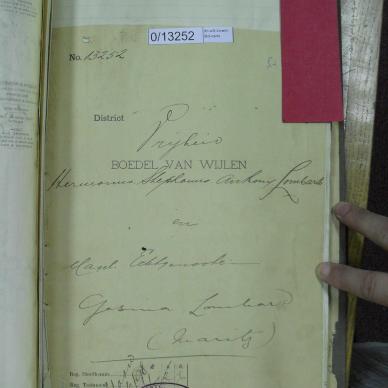 0/13252
No. 13252
District Vrijheid
BOEDEL VAN WIJLEN
Hermanus Stephanus Anthony Lombard
en
Echtgenoote
Gesina Lombard
(Maritz)
Reg. Sterfkennis
Reg. Testament